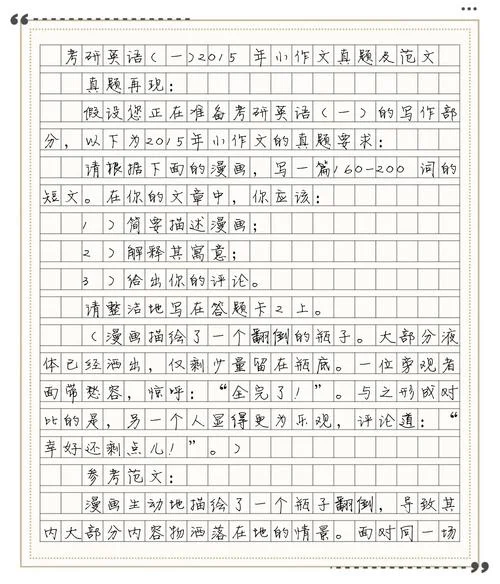 考研英语(一)2015年小作文真题及范文
真题再现:
假设您正在准备考研英语(一)的写作部
分,以下为2015年小作文的真题要求:
请根据下面的漫画,写一篇160-200 词的
短文。在你的文章中,你应该:
1)简要描述漫画;
2)解释其寓意;
3)给出你的评论。
请整洁地写在答题卡2上。
(漫画描绘了一个翻倒的瓶子。大部分液
体已经洒出,仅剩少量留在瓶底。一位旁观者
面带愁容,惊呼:“全完了!”。与之形成对
比的是,另一个人显得更为乐观,评论道:“
幸好还剩点儿!”。)
参考范文:
漫画生动地描绘了一个瓶子翻倒,导致其
内大部分内容物洒落在地的情景。面对同一场